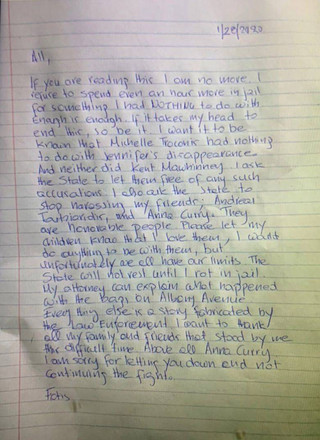 1/28/2020
All,
If you are reading this I am no more. I
refuse to spend even an hour more in jail
for something I had NOTHING to do with
Enough is enough. If it takes my head to
end this, so be it. I want it to be
known that Michelle Troconis had nothing
to do with Jennifer's disappearance.
And neither did Kent Mawhinney. I ask
the State to let them free of any such
accusations. I also ask the State to
stop harassing my friends; Andreas
Toutziaridis, and Anna Curry. They
are honorable people. Please let my
children know that I love them, I would
do anything to be with them, but
unfortunately we all have our limits. The
State will not rest until I rot in jail.
My attorney can explain what happened
with the bags on Albany Avenue.
Everything else is a story fabricated by
the Law Enforcement. I want to thank
all my family and friends that stood by me
this difficult time. Above all Anna Curry.
I am sorry for letting you down and not
continuing the fight.
Fotis